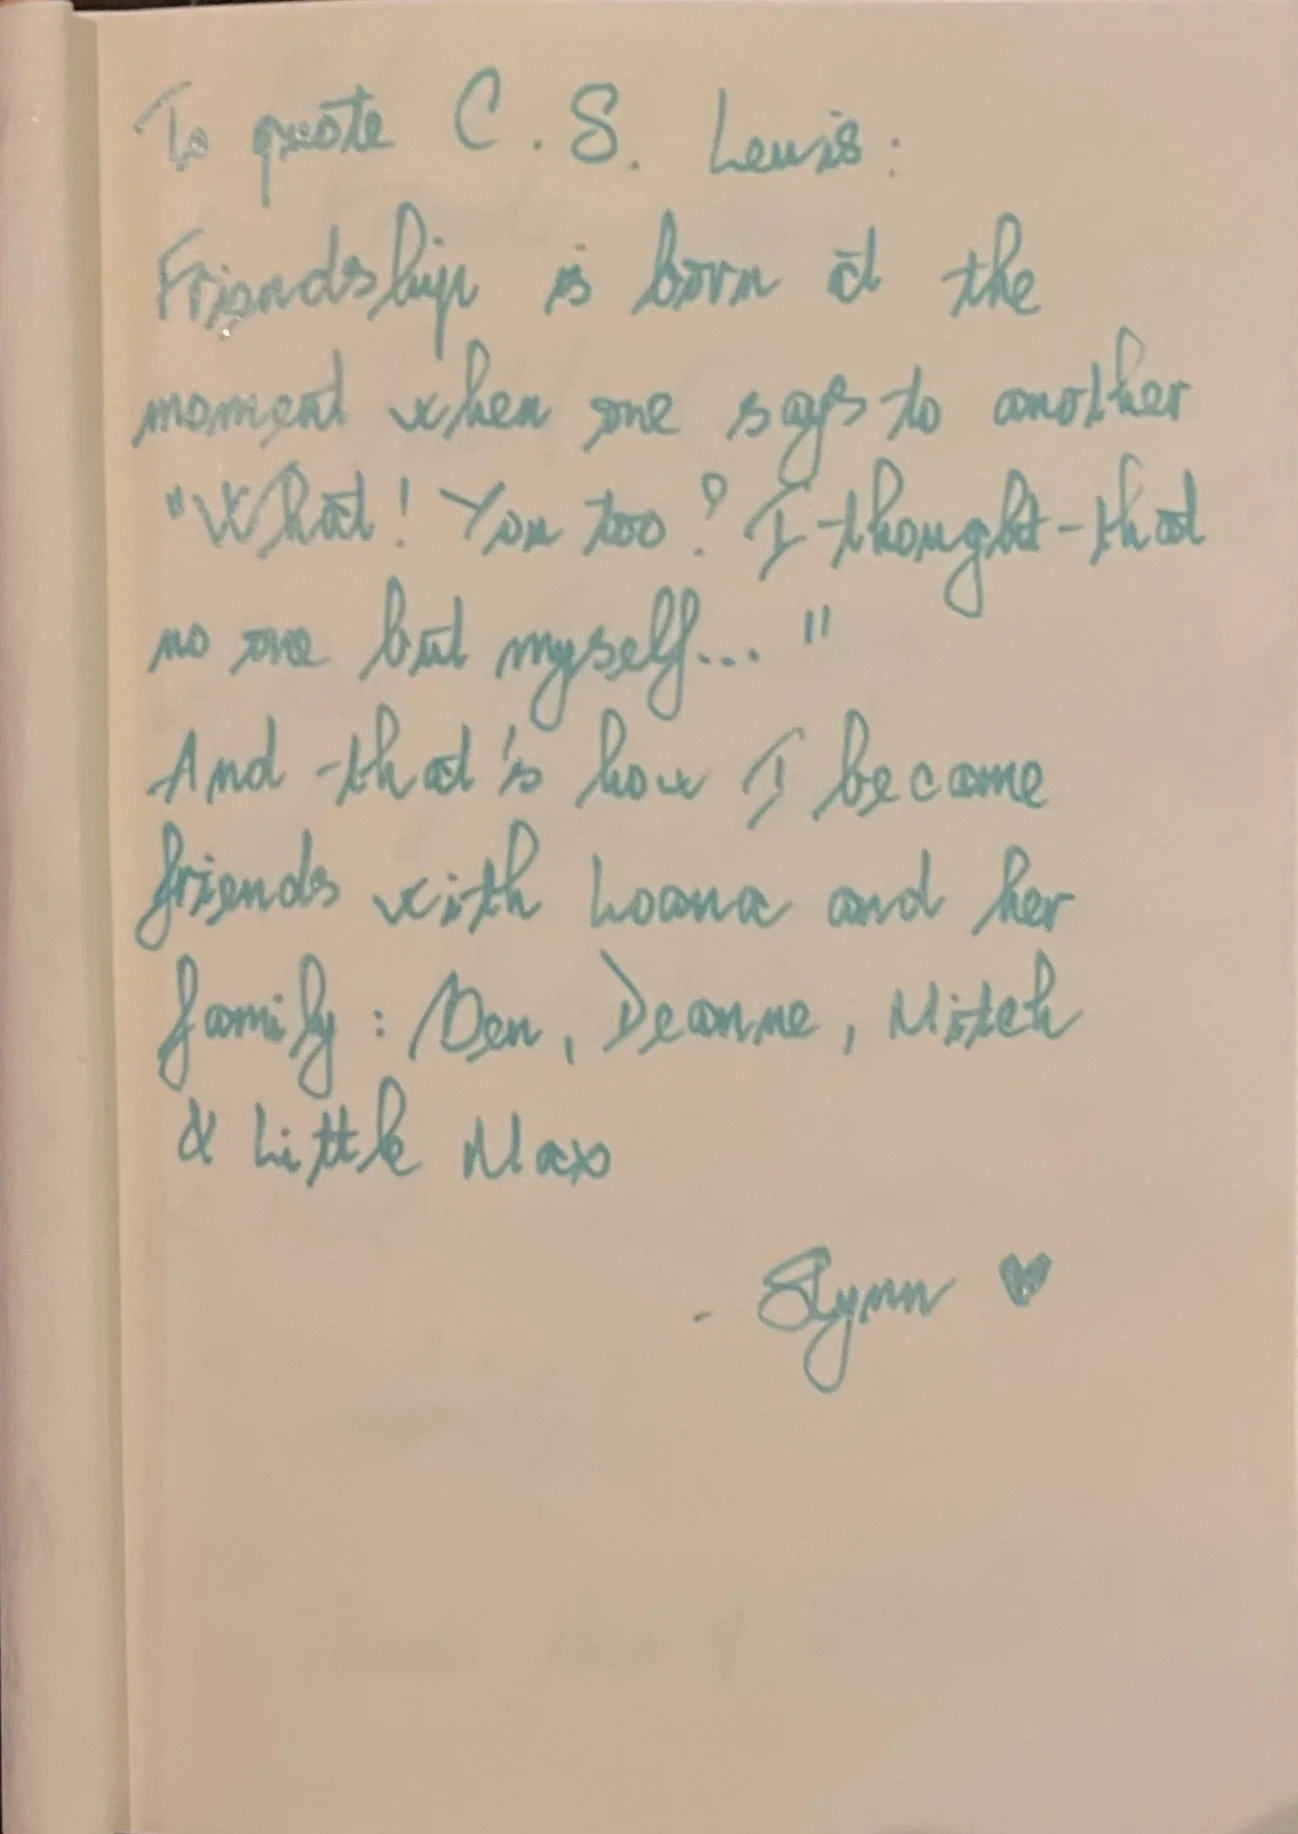 To quote C. S. Lewis:
Friendship is born at the
moment when one says to another
"What! You too? I thought that
no one but myself... "
And that's how I became
friends with Loana and her
family: Den, Deanne, Mitch
& Little Max
- Slynn ♥